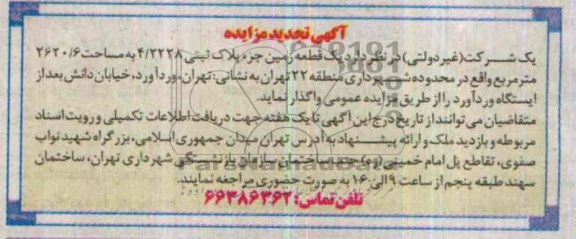 آگهی تجدید مزایده
یک شرکت (غیر دولتی) در نظر دارد یک قطعه زمین جزء پلاک ثبتی ۴/۲۲۲۸ به مساحت ۲۶۲۰/۶
متر مربع واقع در محدوده شهرداری منطقه ۲۲ تهران به نشانی: تهران، ورد آورد، خیابان دانش بعد از
ایستگاه ورد آورد را از طریق مزایده عمومی واگذار نماید.
متقاضیان می‌توانند از تاریخ درج این آگهی تا یک هفته جهت دریافت اطلاعات تکمیلی و رویت اسناد
مربوطه و بازدید ملک و ارائه پیشنهاد به آدرس تهران میدان جمهوری اسلامی، بزرگراه شهید نواب
صفوی، تقاطع پل امام خمینی (ره) جنب ساختمان سازمان بازنشستگی شهرداری تهران، ساختمان
سهند طبقه پنجم از ساعت ۹ الی ۱۶ به صورت حضوری مراجعه نمایند.
تلفن تماس: ۶۶۳۸۶۳۶۲